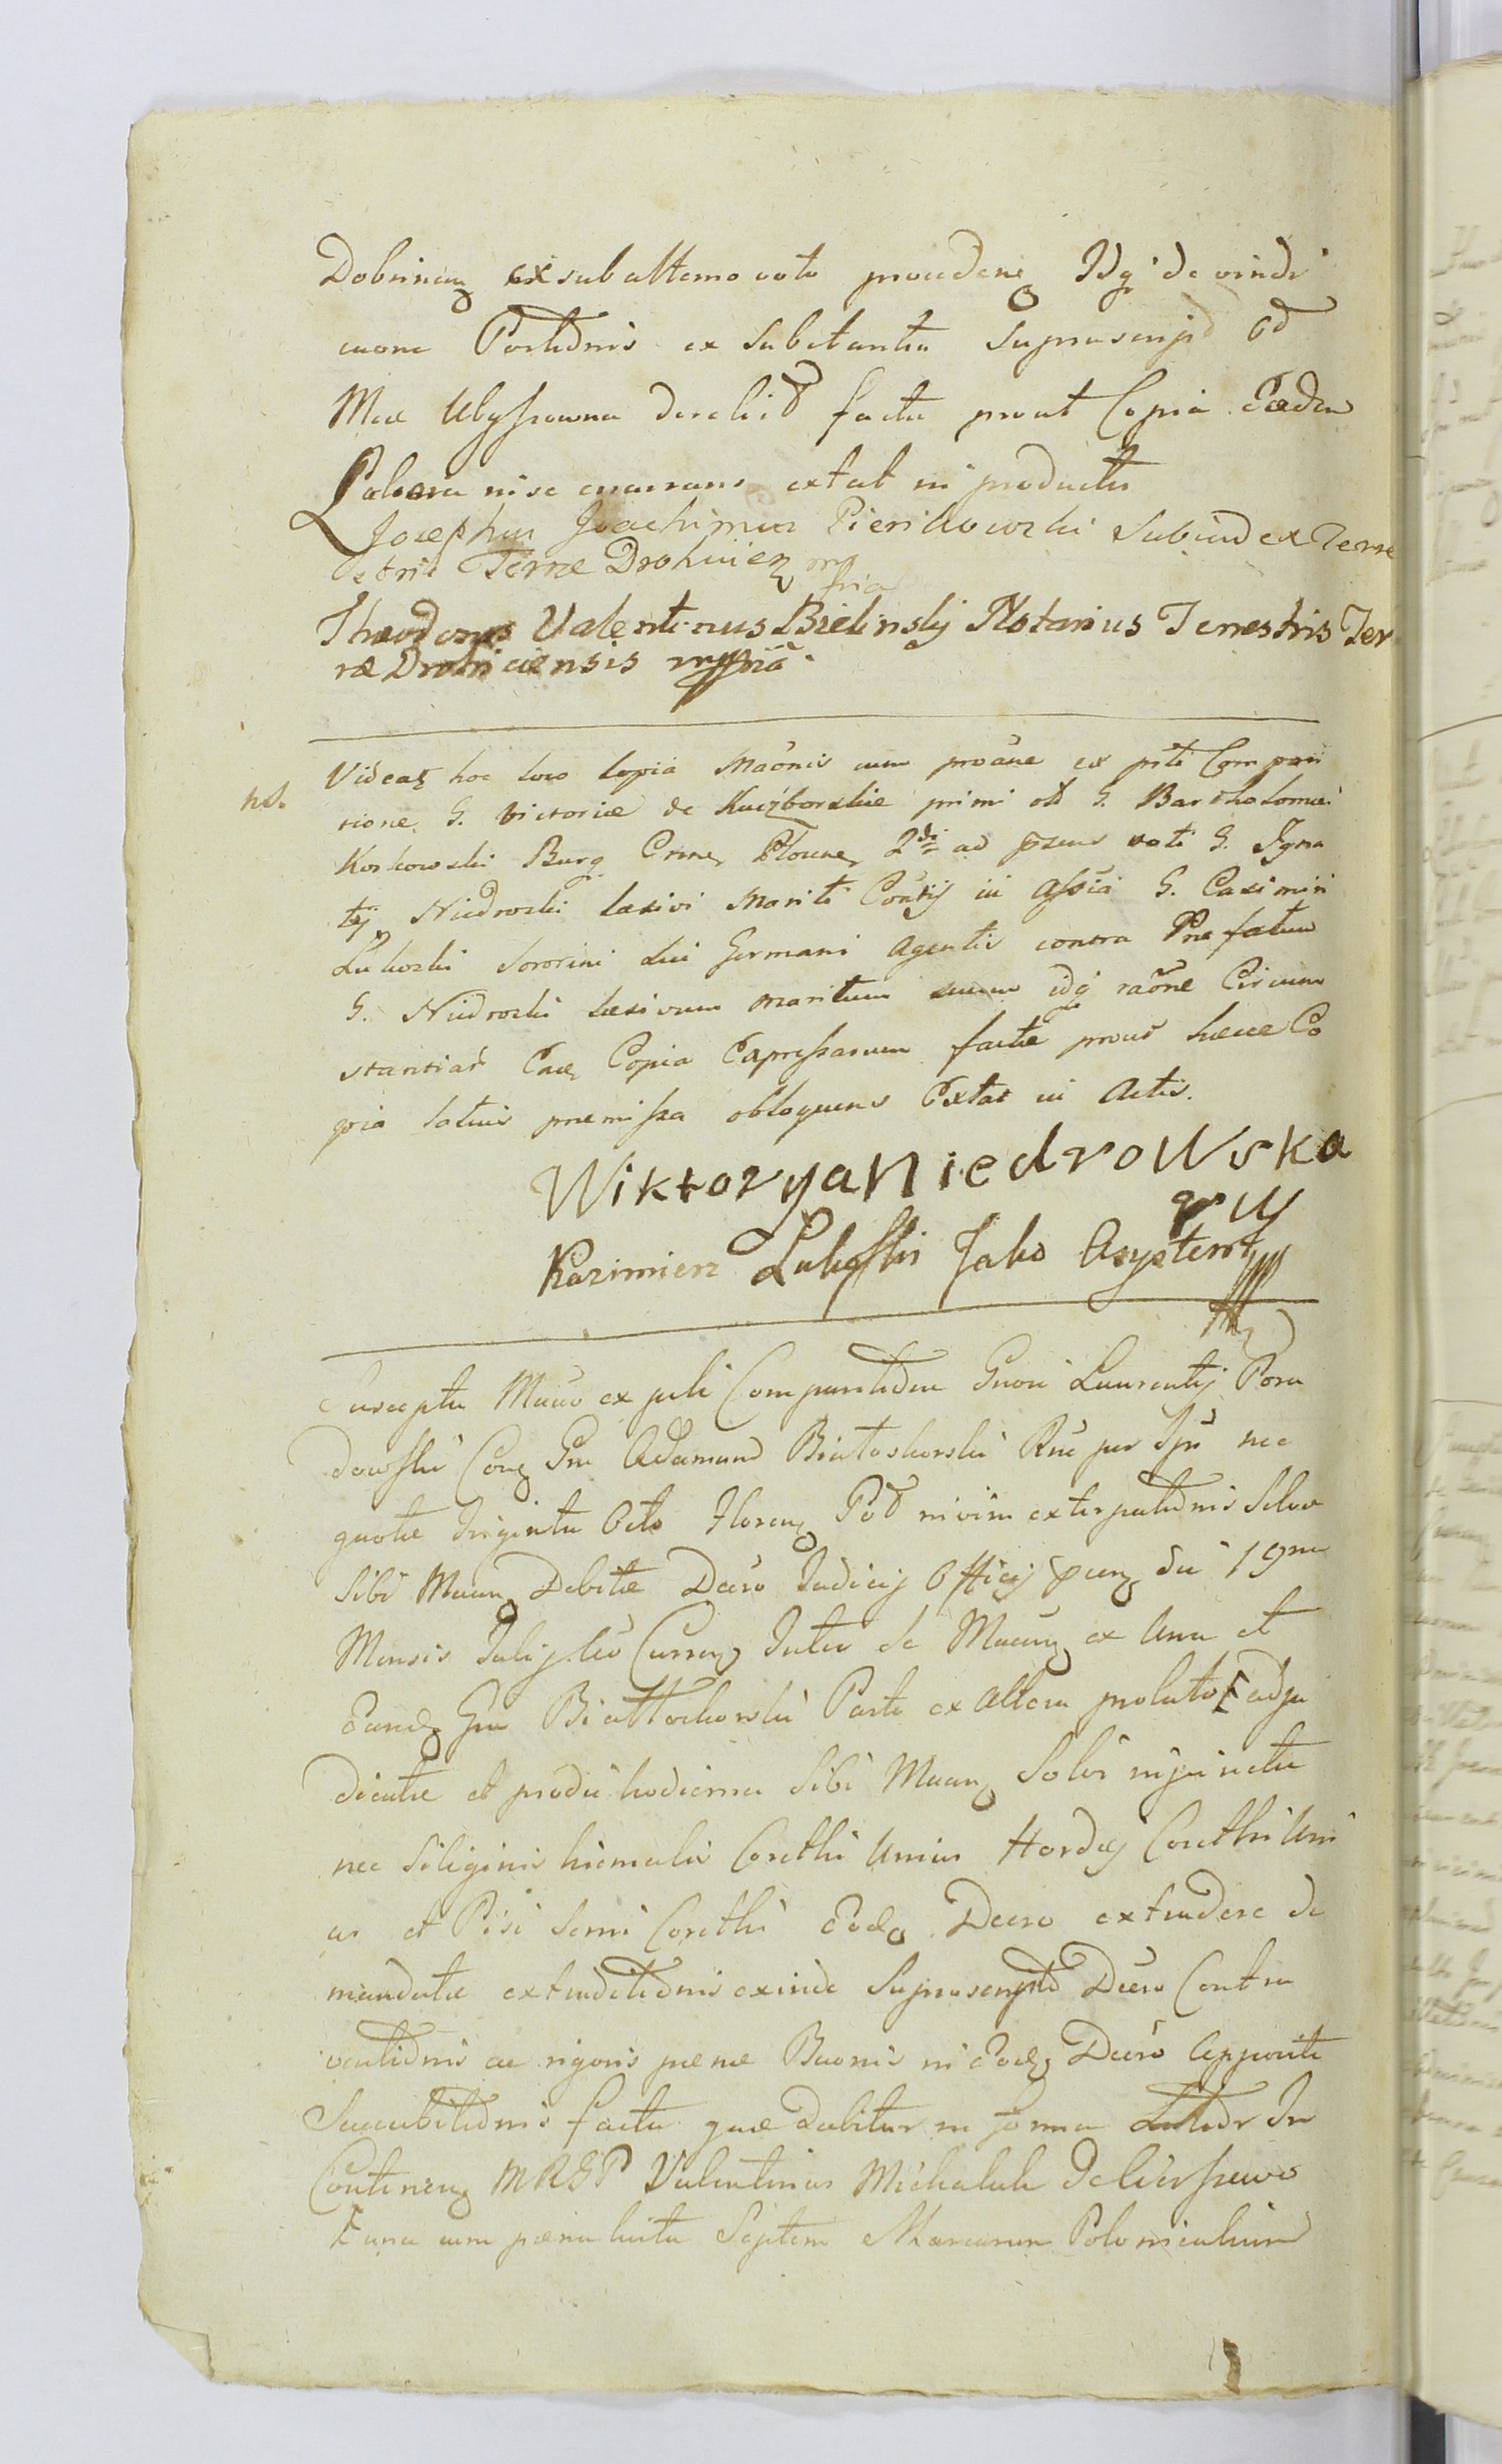 Dobrinen ex subalterno voto proceden Idq de vindi
caone Portionis ex Substantia Suprascrip Gd
Mae Ulyssowna derelict facta prout Copia Eadem
Latiora nise enarrans extat in productu
Josephus Joachimus Pienikowski Subiudex Terre
stris Terræ Drohicien mp
pria
Theodorus Valentinus Bielinsky Notarius Terrestris Ter
ræ Drohiciensis mppria
ns. Videaꝶ hoc loco Copia Maonis cum proane ex prti Compari
tione G. Victoriæ de Kuczborskie primi olt G. Bartholomæi
Koskowski Burg Crnen Plocnen 2di ad præns voti G. Igna
tij Niedroski læsivi Mariti Conrtij in Assia G. Casimiri
Lukoski Sororini sui Germani Agentis contra Præfatum
G. Niedroski læsivum maritum suum idq raone Circum
stantiar Eade Copia Expressarum factæ prout hæcce Co
pia latius præmissa obloquens Extat in Actis.
Wiktorya Niedrowska
Kazimierz Lukoski Jako Asystent
Suscepta Manio ex parte Comparentione Gnosi Laurentij Pora
dowski Con Gm Adamum Białoskorski Rne per Ipsū nec
quote triginta Octo Floren Pol niviū extirpationis Silvæ
Sibi Manen Debitæ Decro Judicij Officij præn die 19na
Mensis Julij Curren Inter se Manen ex Una et
Eund Gm Białloskorski Parte ex Altera prolato adju
dicatæ et prodie hodierna Sibi Manen Solvi injuncta
nec Siliginis hiemalis Corethi Unius Hordej Corethi Uni
us et Pisi Semi Corethi Eod Decro extradere de
mandatæ extraditionis exinde Suprascripto Decro Contra
ventionis ac rigoris pœnæ Banonis in Eod Decro Appositi
Succubitionis facta quæ dabitur in forma
Continen MRGP Valentinus Michalak de
una cum pœna luita Septem Marcarum Polonicalium